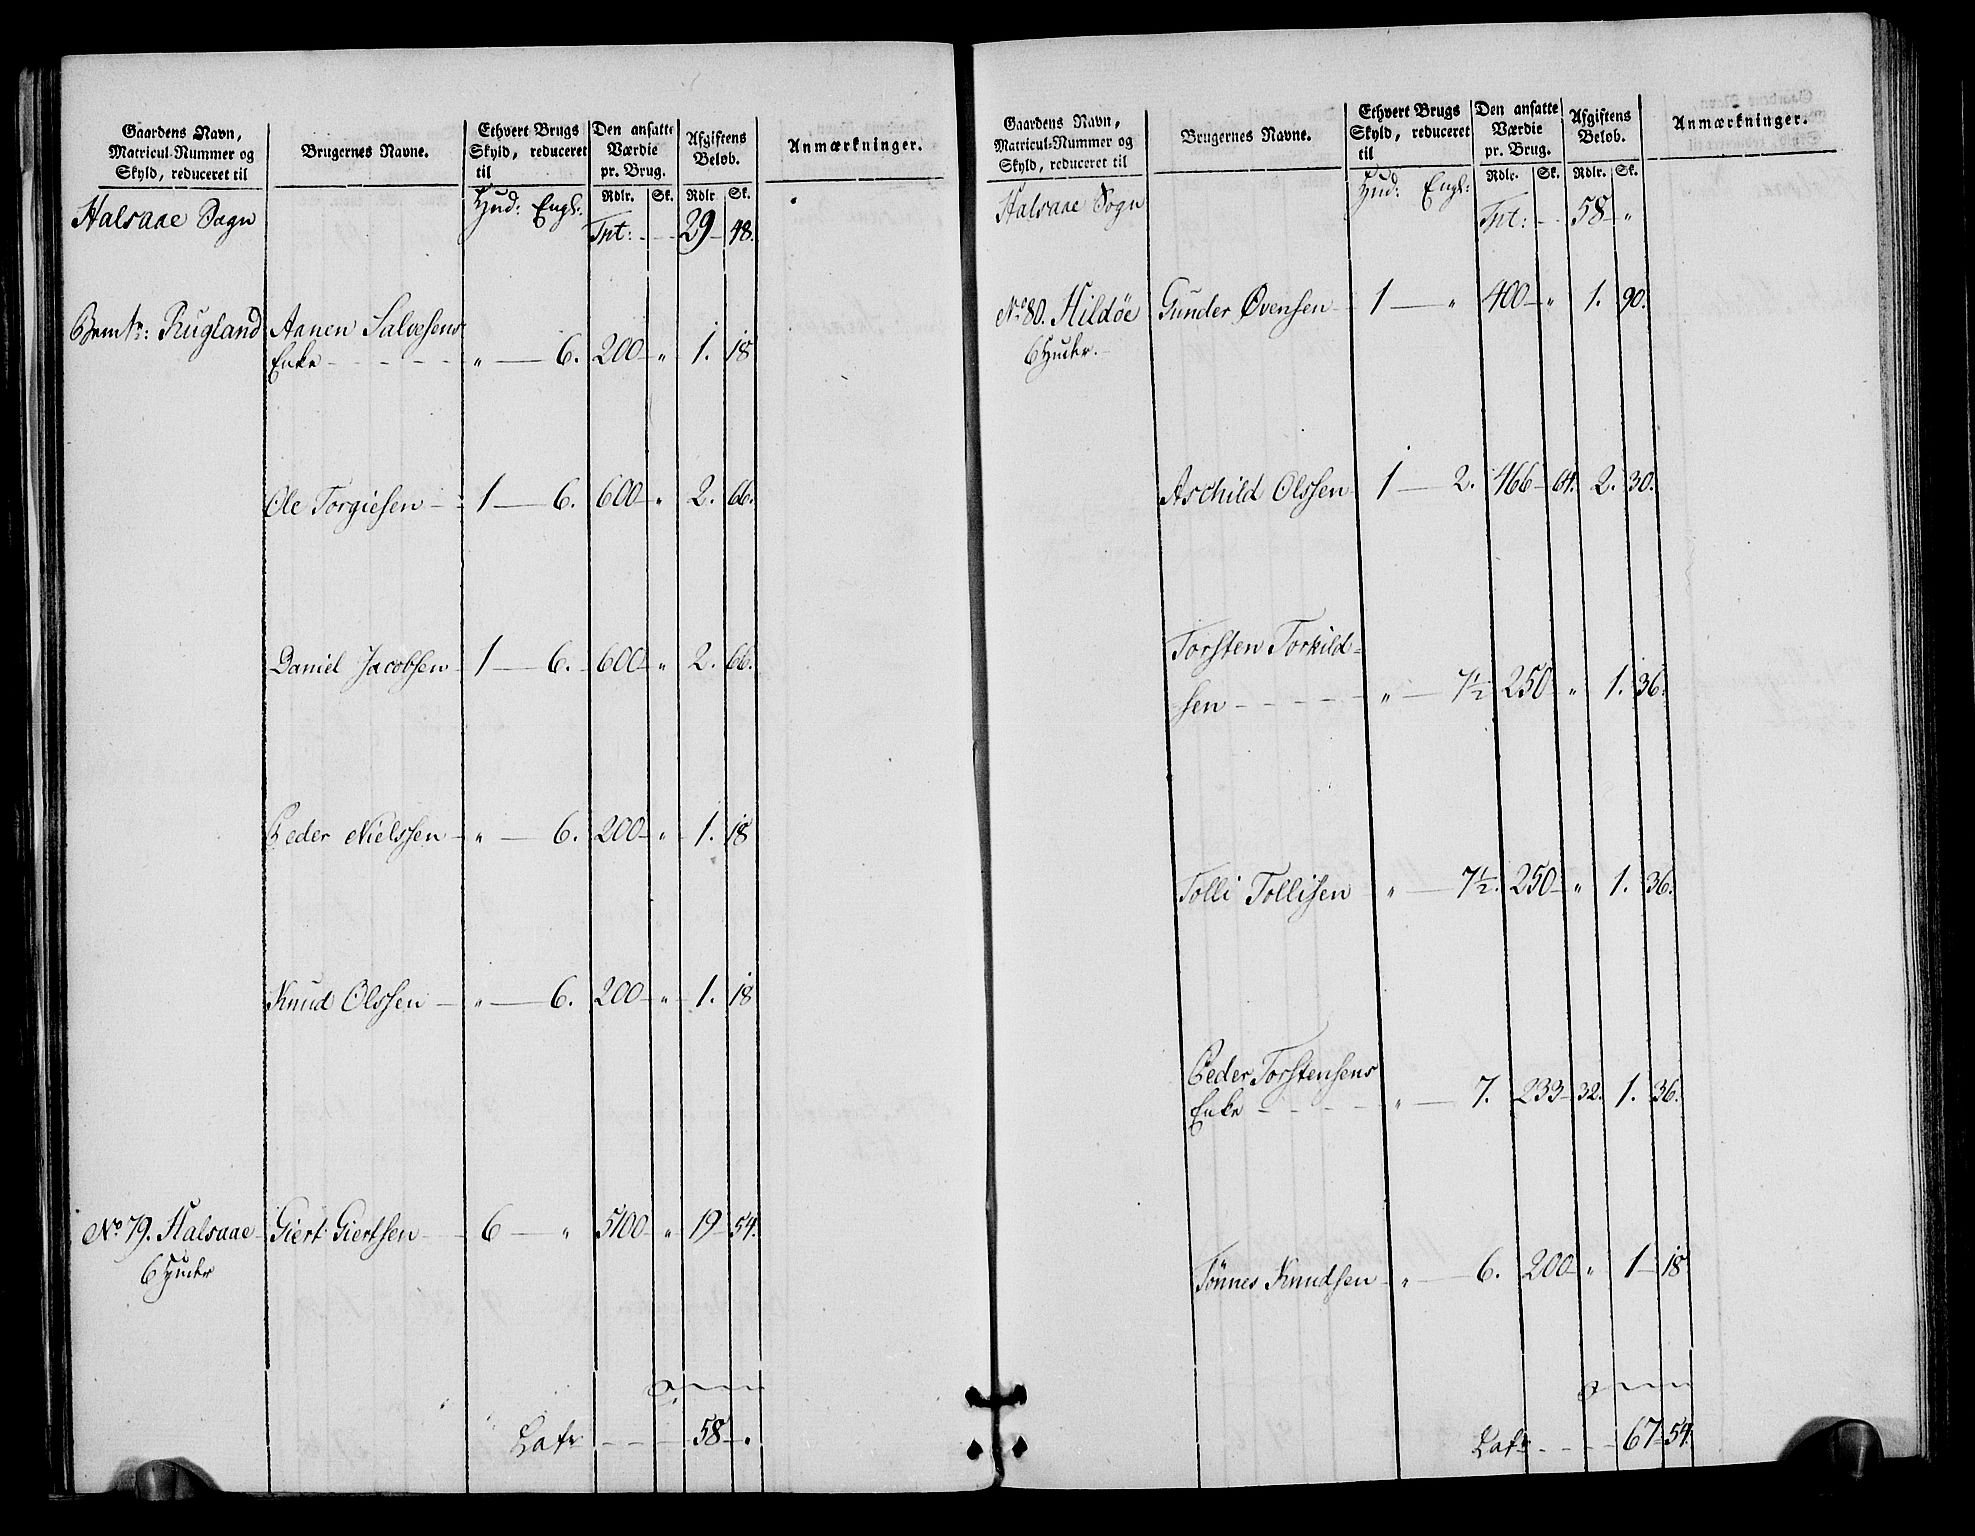 Gaardens Navn, Matricul-Nummer og Skyld, reduceret til | Brugernes Navne. | Ethvert Brugs Skyld, reduceret til | Den ansatte Værdie pr. Brug. | Afgiftens Beløb. | Anmærkninger.
Hud: Engl: | Rdlr. Sk. | Rdlr. Sk.
Halsaae Sogn Tpt: 29 48.
Rugland Aanen Salvesens
Enke " 6. 200 " 1. 18
Ole Torgiesen 1 6. 600 " 2. 66.
Daniel Jacobsen 1 6. 600 " 2. 66.
Peder Nielssen " 6. 200 " 1. 18
Knud Olssen " 6. 200 " 1. 18
No 79. Halsaae Giert Giertsen 6 " 5100 " 19 54.
6 Huder
Lat 58 "
Gaardens Navn, Matricul-Nummer og Skyld, reduceret til | Brugernes Navne. | Ethvert Brugs Skyld, reduceret til | Den ansatte Værdie pr. Brug. | Afgiftens Beløb. | Anmærkninger.
Hud: Engl: | Rdlr. Sk. | Rdlr. Sk.
Halsaae Sogn Tpt: 58 "
No 80. Hildøe Gunder Øvensen 1 " 400 " 1. 90.
6 Huder.
Aschild Olssen 1 2. 466 64. 2. 30.
Torsten Torkild=
sen " 7½ 250 " 1. 36.
Tolli Tollisen " 7½. 250 " 1. 36.
Peder Torstensens
Enke " 7. 233 32. 1. 36.
Tönnes Knudsen " 6. 200 " 1 18
Lat 67 54